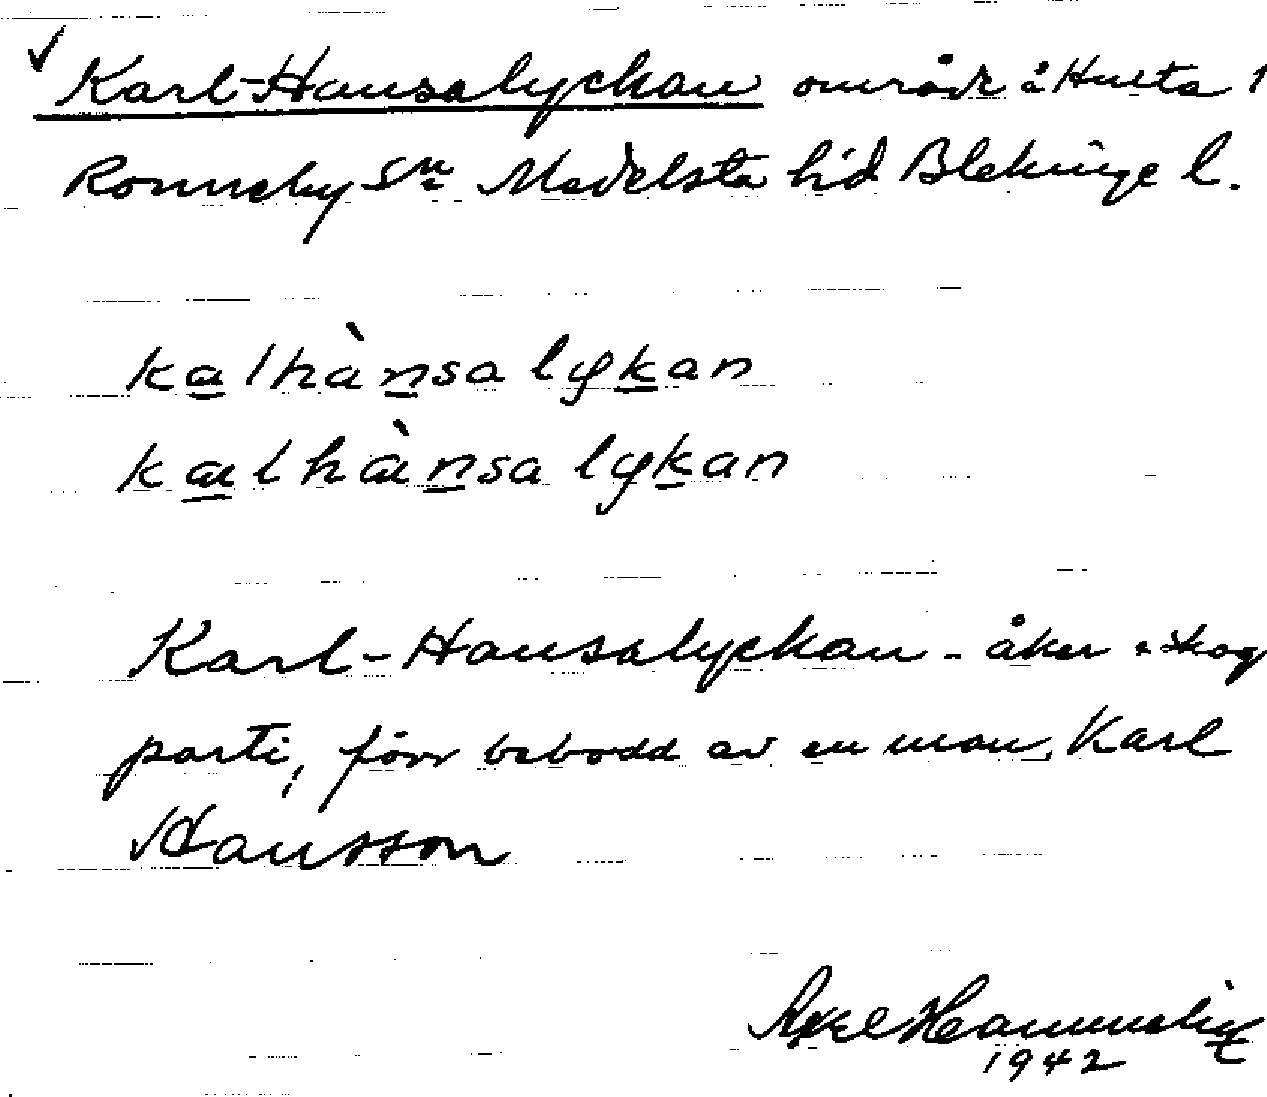 ✓ Karl-Hansalyckan område å Hulta 1
Ronneby sn Medelsta hd Blekinge l.
kalhànsa lykan
kælhànsa lykan
Karl-Hansalyckan - åker o skog
parti, förr bebodd av en man, Karl
Hansson
Axel
1942